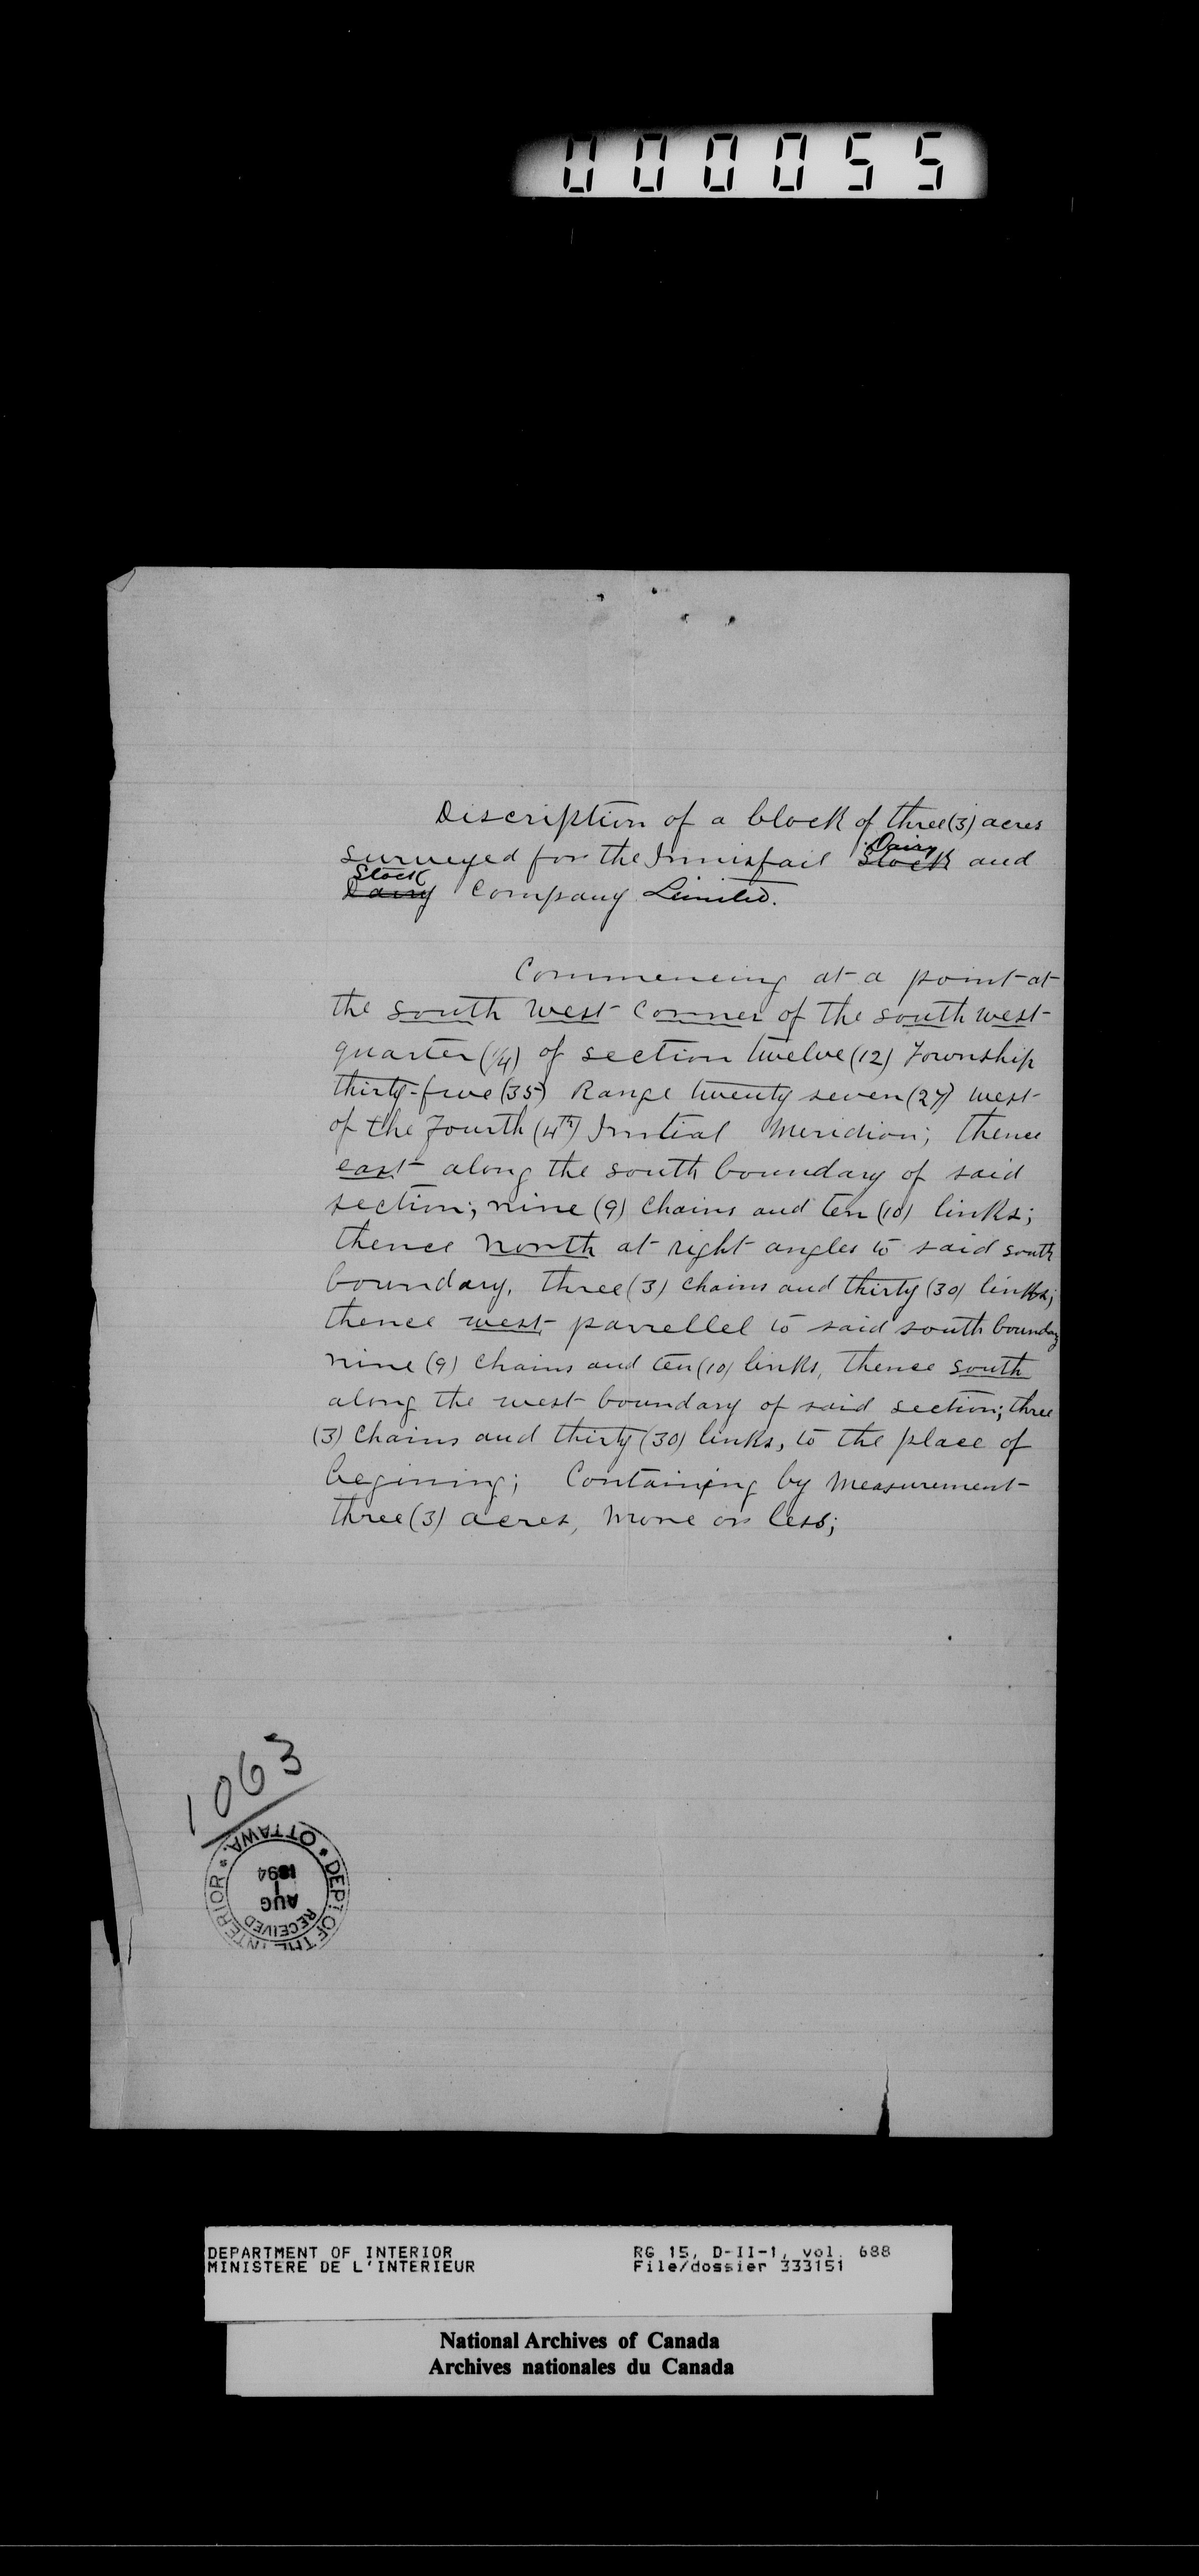 000055
Discription of a block of three (3) acres
surveyed for the Innisfail Stock Dairy and
Dairy Stock Company Limited.
Commencing at a point at
the south west corner of the south west
quarter (1/4) of section twelve (12) Township
thirty-five (35) Range twenty seven (27) west
of the Fourth (4th) Initial Meridian; thence
east along the south boundary of said
section; nine (9) chains and ten (10) links;
thence north at right angles to said south
boundary, three (3) chains and thirty (30) links;
thence west parrellel to said south boundary
nine (9) chains and ten (10) links, thence south
along the west boundary of said section; three
(3) chains and thirty (30) links, to the place of
begining; Containing by measurement
three (3) acres, more or less;
1063
DEPT OF THE INTERIOR * OTTAWA *
RECEIVED
AUG
1
1894
DEPARTMENT OF INTERIOR RG 15, D-II-1, vol. 688
MINISTERE DE L'INTERIEUR File/dossier 333151
National Archives of Canada
Archives nationales du Canada